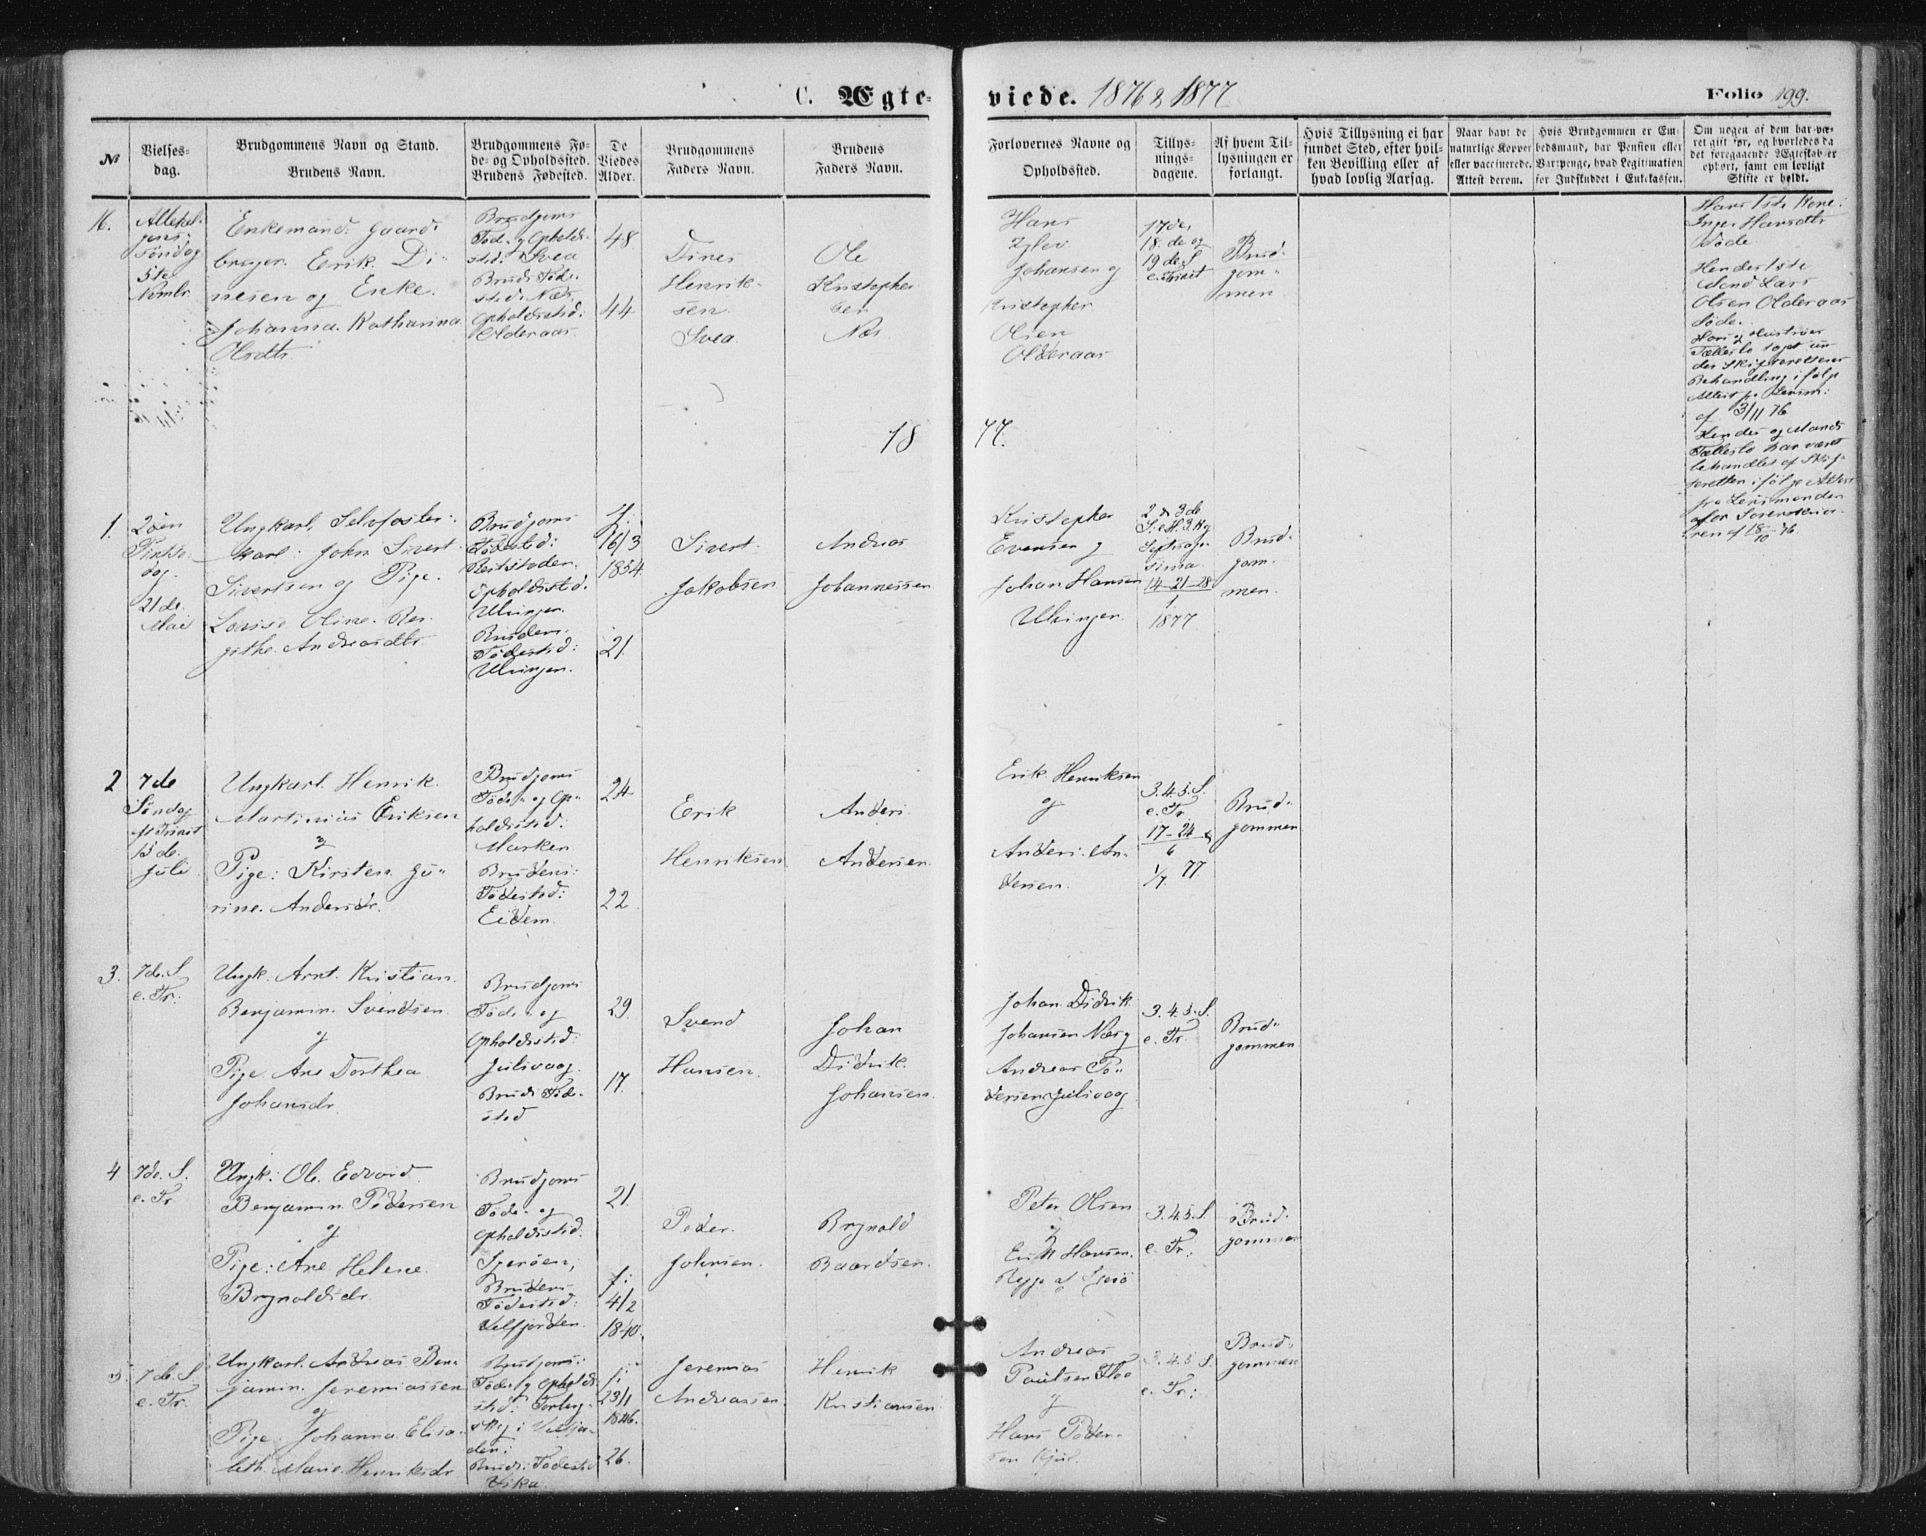 C. Ægte-
viede. 1876 & 1877
Folio 199.
№
Vielses-
dag.
Brudgommens Navn og Stand.
Brudens Navn.
Brudgommens Fø-
de- og Opholdssted.
Brudens Fødested.
De
Viedes
Alder.
Brudgommens
Faders Navn.
Brudens
Faders Navn.
Forlovernes Navne og
Opholdssted.
Tillys-
nings-
dagene.
Af hvem Til-
lysningen er
forlangt.
Hvis Tillysning ei har
fundet Sted, efter hvil-
ken Bevilling eller af
hvad lovlig Aarsag.
Naar havt de
naturlige Kopper
eller vaccinerede.
Attest derom.
Hvis Brudgommen er Em-
bedsmand, har Pension eller
Vartpenge, hvad Legitimation
for Indskuddet i Enkekassen.
Om nogen af dem har væ-
ret gift før, og hvorledes da
det foregaaende Ægteskab er
ophørt, samt om lovligt
Skifte er holdt.
16.
Allehel-
gens
Søndag
5te
Novmbr
Enkemand: Gaard-
bruger Erik Di-
nesen og Enke.
Johanna Katharina
Olsdtr.
Brudgoms
Føde- og Opholds-
sted: Svea
Bruds Føde-
sted: Næs
Opholdssted:
Olderaas
48
44
Dines
Henrik-
sen.
Svea
Ole
Kristopher
sen
Næs
Hans
Johansen og
Kristopher
Olsen
Olderaas
17de,
18.de og
19de S.
e. Trinit
Brud-
gom-
men
Hans 1ste Kone:
Inger Hansdtr
døde
Hendes 1ste
Mand Lars
Olsen Olderaas
døde.
Hans og Hustrues
Fællesbo tapt un-
der Skifterettens
Behandling ifølge
Attest fra Lensm:
af 3/11 76
Hendes og Mands
Fællesbo har været
behandlet af Skif-
teretten ifølge Attest
fra Lensmanden
18
77.
1.
2den
Pintse
dag
21de.
Mai
Ungkarl, Selvfoster-
karl: John Sivert
Sivertsen og Pige.
Lovise Oline Ber
githe Andreasdtr.
Brudgoms
Fødested:
Reitstøden.
Opholdssted.
Ulvingen.
Brudens
Fødested:
Ulvingen.
f.
16/3
1854
21
Sivert
Jakobsen
Andreas
Johannessen
Kristopher
Evensen og
Johan Hansen
Ulvingen
2 & 3de
Septuage-
sima
14-21-28
1
1877
Brud-
gom-
men.
2
7de
Søndag
ef Trinit
15de.
Juli
Ungkarl Henrik
Martinius Eriksen
og
Pige: Kirsten Jo-
rine Andersdr.
Brudgoms
Føde- og Op-
holdssted:
Marken
Brudens
Fødested:
Eidem.
24
22
Erik
Henriksen
Anders
Andersen
Erik Henriksen
og
Anders An-
dersen.
3.4.5.S.
e. Tr
17-24
6
1/7. 77
Brud-
gommen
3.
7de. S.
e. Tr:
Ungk: Arnt Kristian
Benjamin Svendsen
og
Pige. Ane Dorthea
Johansdr.
Brudgoms
Føde- og
Opholdssted:
Julivaag.
Bruds Føde-
sted
29.
17.
Svend
Hansen.
Johan
Didrik
Johansen.
Johan Didrik
Johansen Næs og
Andreas Pe-
dersen Julivaag
3.4.5.S.
e. Tr
Brud-
gommen
4
7de. S.
e. Tr
Ungk: Ole Edvard
Benjamin Pedersen
og
Pige: Ane Helene
Brynoldsdr.
Brudgoms
Føde- og
Opholdssted.
Igerøen,
Brudens
Fødested:
Velfjorden.
21.
f:
4/2
1840.
Peder
Johnsen.
Brynold
Baardsen.
Peter Olsen
og
Erik Hansen.
Rygge af Igerö
3.4.5.S.
e. Tr:
Brud-
gommen
5
7de S.
e. Tr.
Ungkarl Andreas Ben-
jamin Jeremiassen
og
Pige Johanna Elisa-
beth Marie Henriksdr
Brudgoms:
Føde og Opholds
sted: Torberg
skog i Velfjor-
den:
Bruds: Fødested
Vika.
f:
23/1
1846.
26.
Jeremias
Andreassen
Henrik
Kristiansen
Andreas
Paulsen Floe
og
Hans Peder-
sen
3.4.5 S.
e. Tr:
Brud-
gommen